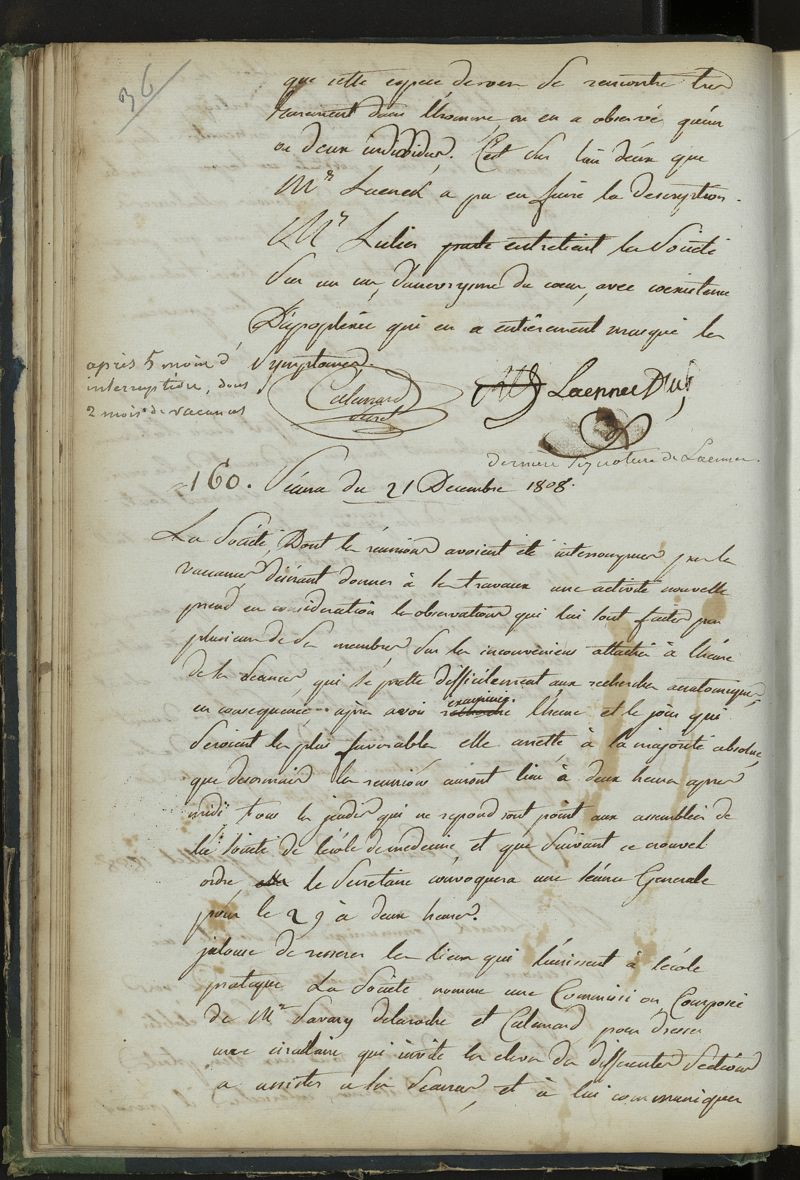 36
que cette espece de vers se rencontre tres
rarement dans l'homme on en a observé qu'un
ou deux individus. C'est sur l'un d'eux que
Mr Laenek a pu en faire la description.
Mr Lulier parle entretient la Société
sur un cas d'anevrysme du cœur, avec coexistence
D'apoplexie qui en a entièrement masqué les
symptomes.
après 5 mois d'
interruption, dont
2 mois de vacances
Calemard
Laennec D.M.
derniere signature de Laennec.
160. Séance du 21 Decembre 1808.
La Société, Dont les réunions avoient été interrompues par les
vacances désirant donner à ses travaux une activité nouvelle
prend en considération les observations qui lui sont faites par
plusieurs de ses membres sur les inconvéniens attachés à l'heure
de ses Seances, qui se prette difficilement aux recherches anatomiques,
en consequence après avoir examiné l'heure et le jour qui
seroient les plus favorables elle arrette à la majorité absolue,
que desormais les reunions auront lieu à deux heures apres
midi tous les jeudis qui ne repondront point aux assemblées de
la Société de l'école de medecine et que suivant ce nouvel
ordre, le Secretaire convoquera une séance Generale
pour le 29 à deux heures.
jalouse de resserer les liens qui l'unissent à l'école
pratique La Société nomme une Commission Composée
de Mrs Savary Delaroche et Calemard pour dresser
une circullaire qui invite les eleves des differentes Sections
a assister a ses Seances, et à lui communiquer